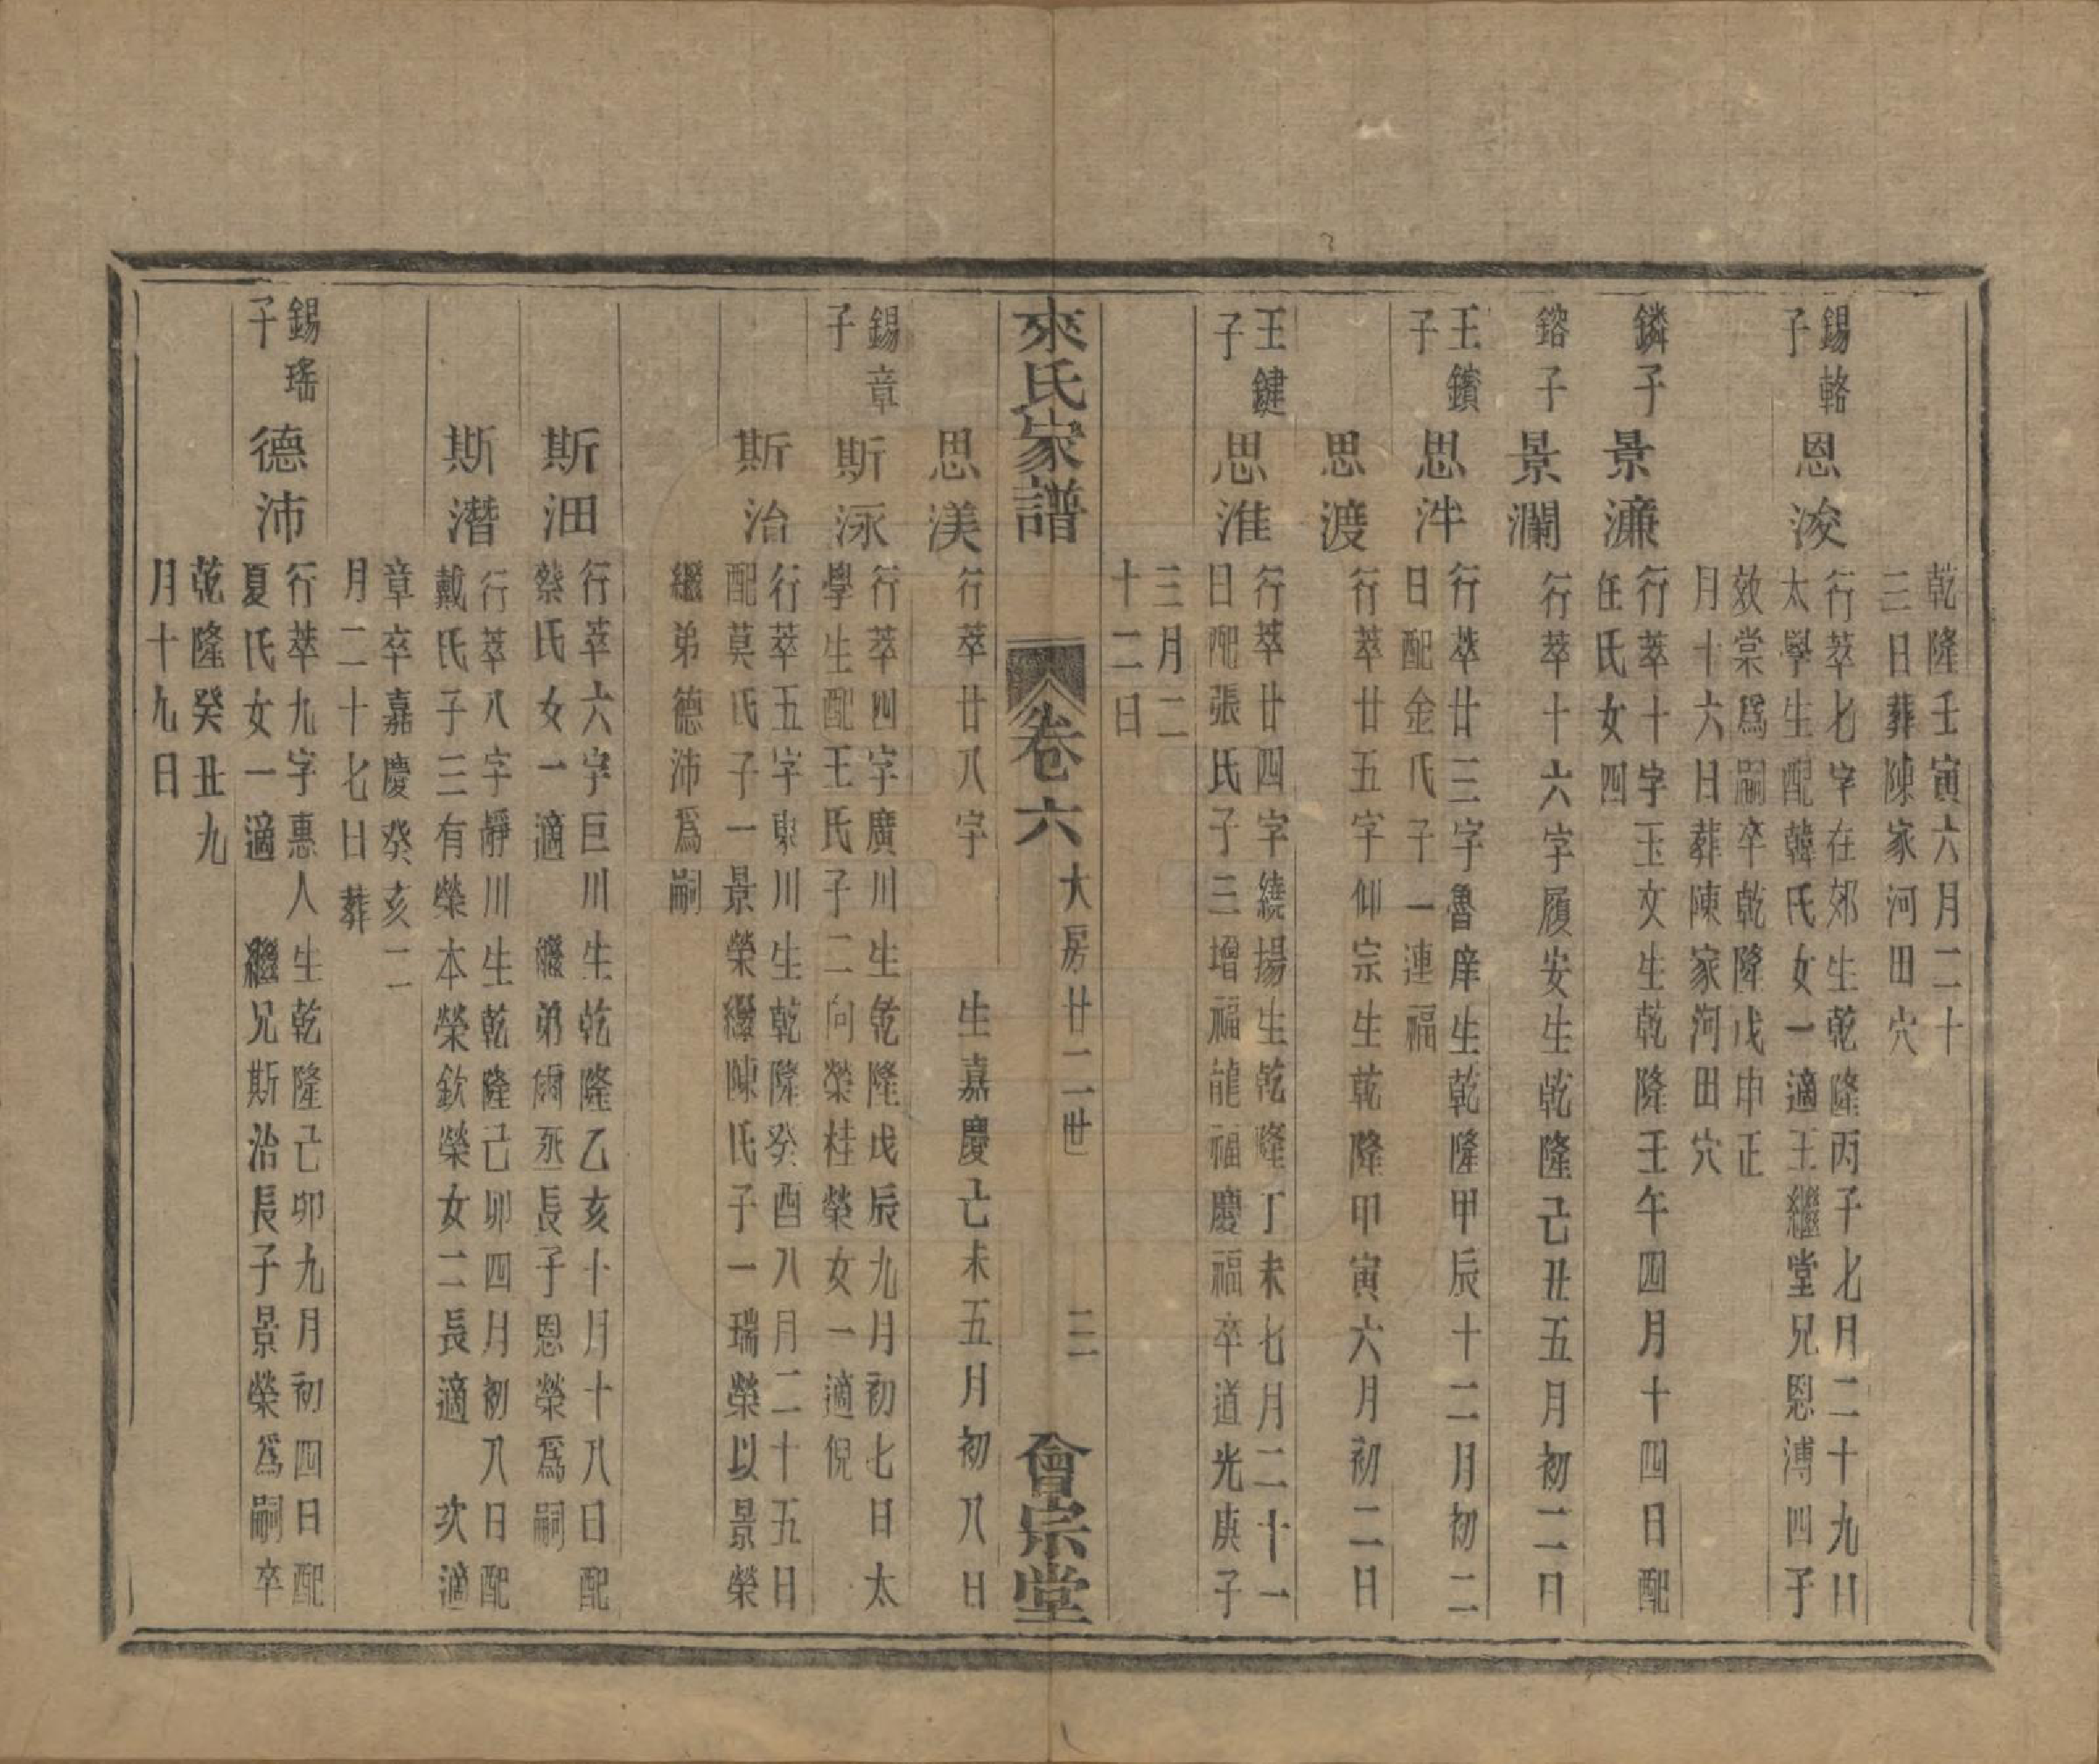 乾隆壬寅六月二十
三日葬陳家河田穴
錫輅
子
恩浚
行萃七字在郊生乾隆丙子七月二十九日
太學生配韓氏女一適王繼堂兄恩溥四子
效棠爲嗣卒乾隆戊申正
月十六日葬陳家河田穴
鏻子
景濂
行萃十字玉文生乾隆壬午四月十四日配
任氏女四
鎔子
景瀾
行萃十六字履安生乾隆己丑五月初二日
王鑌
子
思泮
行萃廿三字魯庠生乾隆甲辰十二月初二
日配金氏子一連福
思渡
行萃廿五字仰宗生乾隆甲寅六月初二日
王鍵
子
思淮
行萃廿四字繞揚生乾隆丁未七月二十一
日配張氏子三增福龍福慶福卒道光庚子
三月二
十二日
來氏家譜
卷六
大房廿二世
二
會宗堂
思渼
行萃廿八字 生嘉慶己未五月初八日
錫章
子
斯泳
行萃四字廣川生乾隆戊辰九月初七日太
學生配王氏子二向榮桂榮女一適倪
斯治
行萃五字東川生乾隆癸酉八月二十五日
配莫氏子一景榮繼陳氏子一瑞榮以景榮
繼弟德沛爲嗣
斯沺
行萃六字巨川生乾隆乙亥十月十八日配
蔡氏女一適 繼弟爾丞長子恩榮爲嗣
斯潛
行萃八字靜川生乾隆己卯四月初八日配
戴氏子三有榮本榮欽榮女二長適 次適
章卒嘉慶癸亥二
月二十七日葬
錫瑤
子
德沛
行萃九字惠人生乾隆己卯九月初四日配
夏氏女一適 繼兄斯治長子景榮爲嗣卒
乾隆癸丑九
月十九日